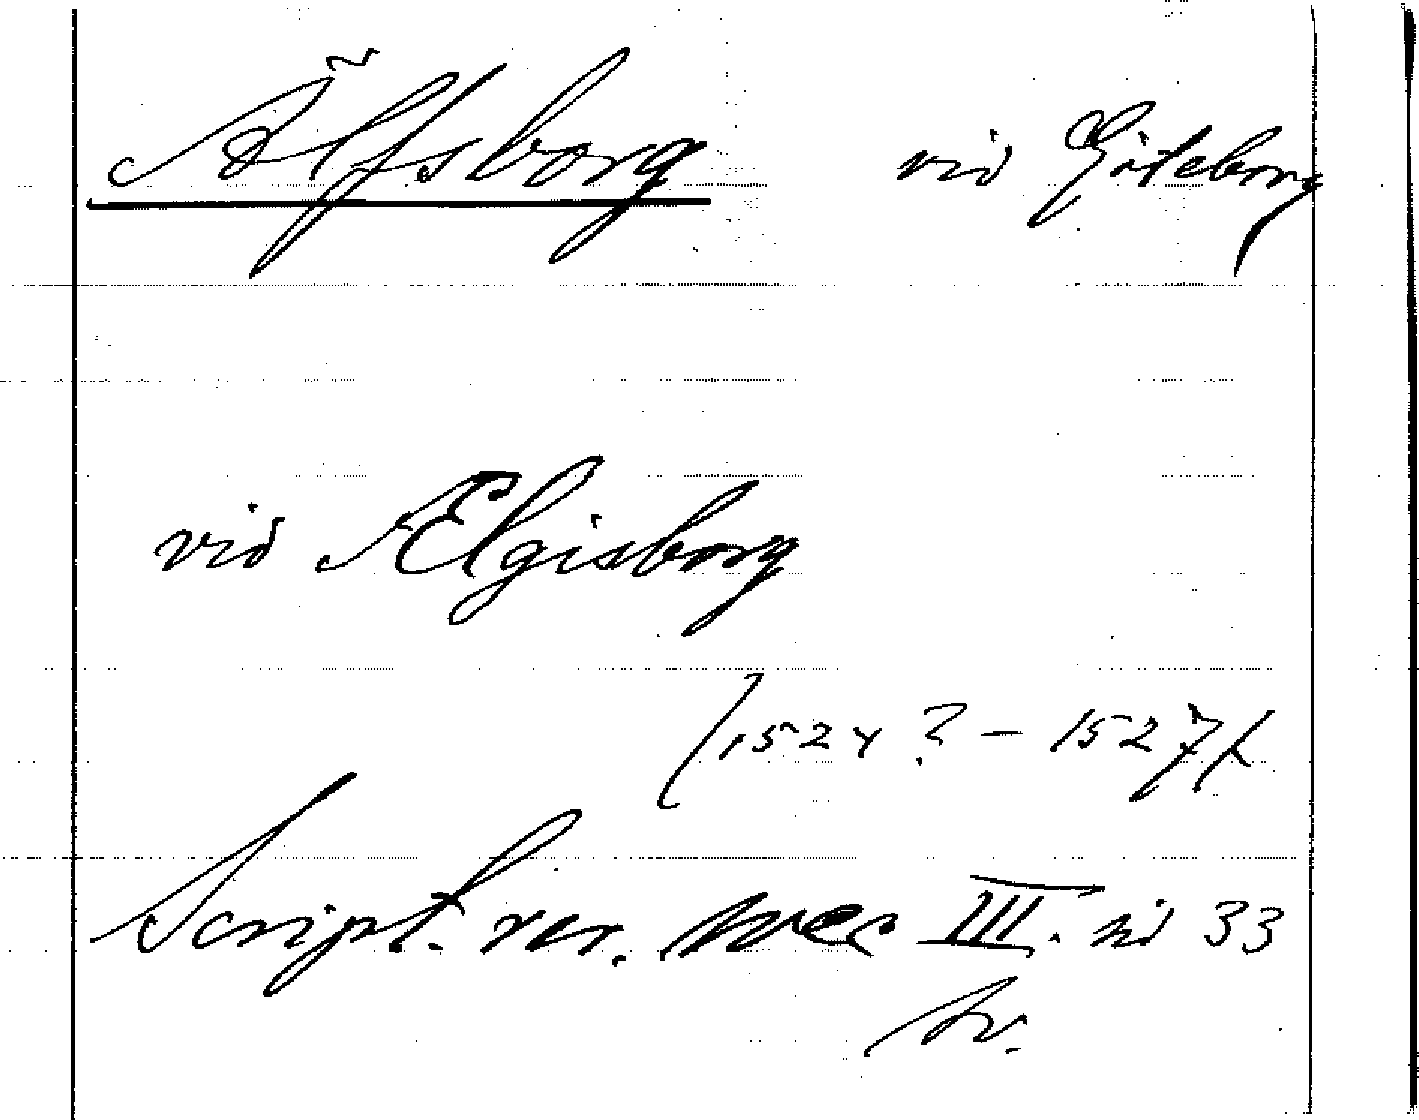 Älfsborg vid Göteborg
vid Ælgisborg
(1524? - 1527)
Script. rer. svec III. sid 33
sv.